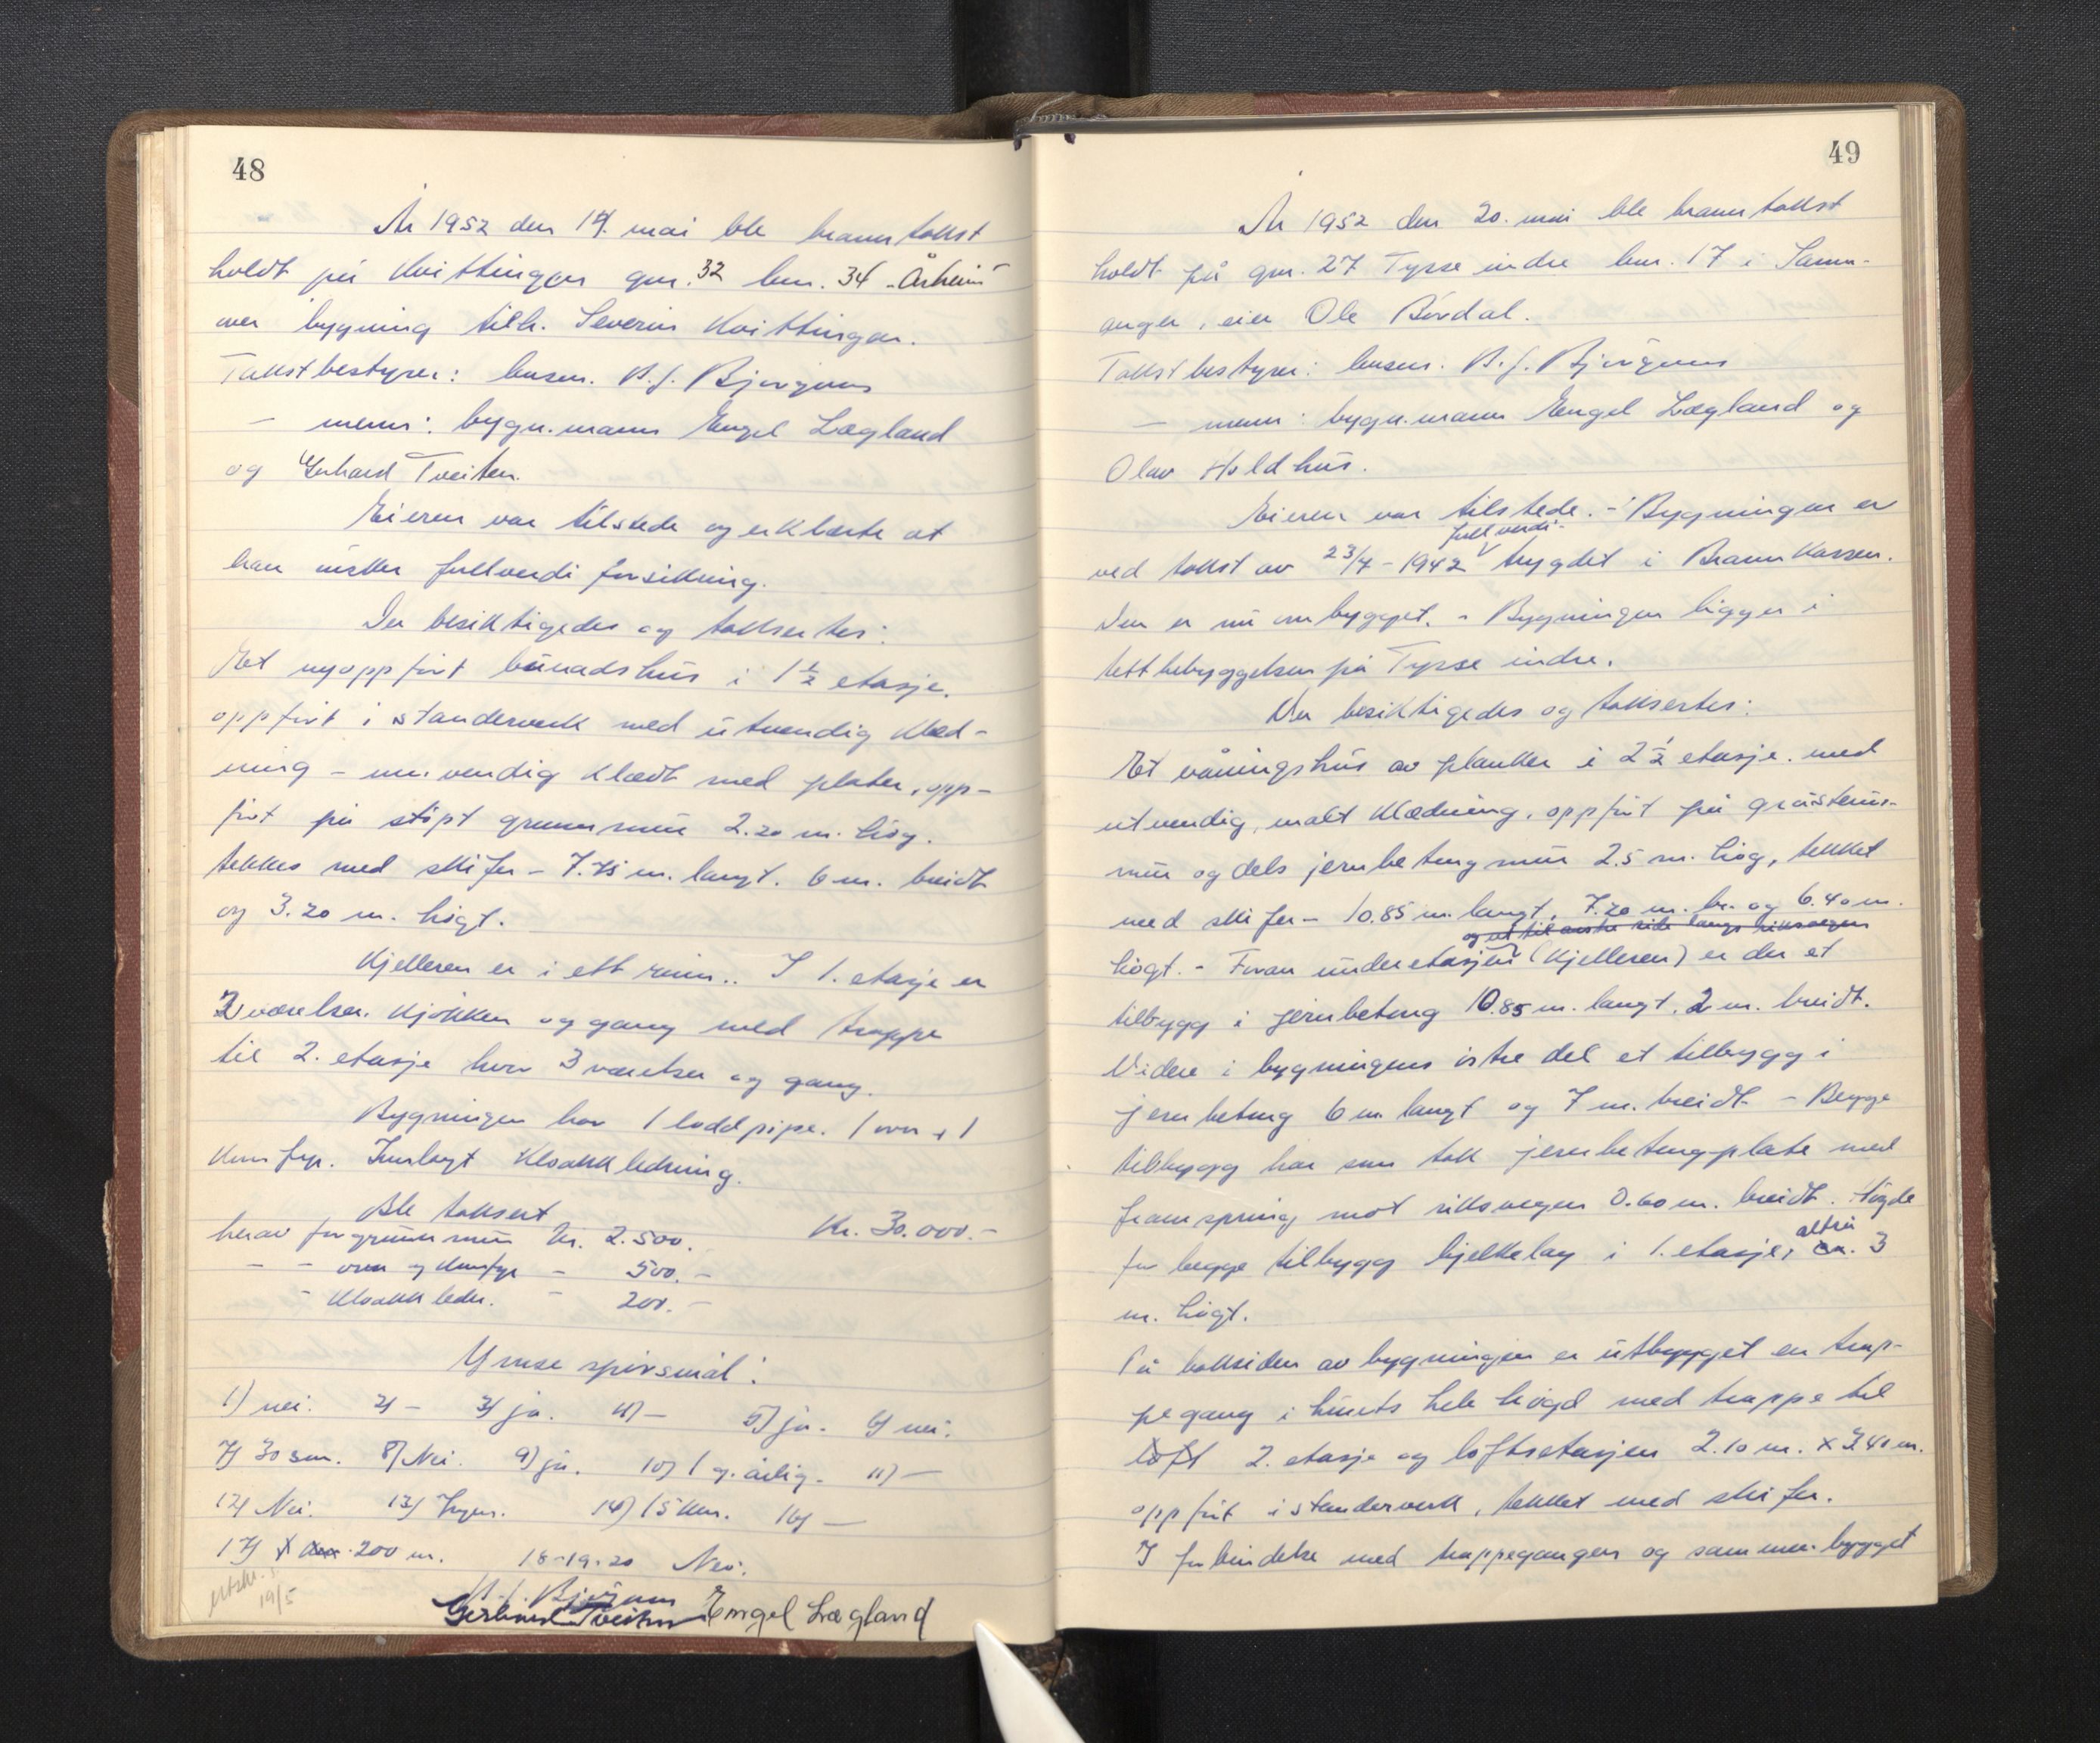 48
År 1952 den 14. mai ble branntakst
holdt på Kvittingen gnr. 32 bnr. 34 "Årheim"
over bygning tilh. Severin Kvittingen.
Takstbestyrer: lensm. B. J. Bjørgum
— menn: bygn.mann Engel Lægland
og Gerhard Tveiten.
Eieren var tilstede og erklærte at
han ønsker fullverdi forsikring.
Der besiktigedes og taksertes:
Et nyoppført bunadshus i 1 1/2 etasje.
oppført i standerverk med utvendig klæd-
ning – innvendig klædt med plater, opp-
ført på støpt grunnmur 2.20 m. høg.
tekkes med skifer – 7.75 m. langt. 6 m. breidt
og 3.20 m. høgt.
Kjelleren er i ett rum.. I 1. etasje er
2 værelser. Kjøkken og gang med trappe
til 2. etasje hvor 3 værelser og gang.
Bygningen har 1 loddpipe. 1 ovn + 1
komfyr. Innlagt kloakkledning.
Ble taksert Kr. 30.000.–
herav for grunnmur kr. 2.500.
– – ovn og komfyr – 500.–
– kloakkledn. – 200.–
Ymse spørsmål:
1) nei. 2) – 3) ja. 4) – 5) ja. 6) nei.
7) 30 sm. 8) Nei. 9) ja. 10) 1 g. årlig. 11) –
12) Nei. 13) Ingen. 14) 15 km. 16) –
17) 200 m. 18-19-20 Nei.
utskr. 19/5
B. J. Bjørgum
Gerhard Tveiten Engel Lægland
49
År 1952 den 20. mai ble branntakst
holdt på gnr. 27 Tysse indre bnr. 17 i Samn-
anger, eier Ole Børdal.
Takstbestyrer: lensm. B. J. Bjørgum
— menn: bygn.mann Engel Lægland og
Olav Holdhus.
Eieren var tilstede. – Bygningen er
fullverdi-
ved takst av 23/4 – 1942 trygdet i Brannkassen.
Den er nu ombygget. – Bygningen ligger i
tettbebyggelsen på Tysse indre.
Der besiktigedes og taksertes:
Et våningshus av planker i 2 1/2 etasje. med
utvendig, malt klædning, oppført på gråsteins-
mur og dels jernbetong mur 2.5 m. høg, tekket
med skifer – 10.85 m. langt, 7.20 m. br. og 6.40 m.
og ut til østre side langs riksvegen
høgt. – Foran underetasjen (kjelleren) er der et
tilbygg i jernbetong 10.85 m. langt, 2 m. breidt.
Videre i bygningens østre del et tilbygg i
jernbetong 6 m. langt og 7 m. breidt – Begge
tilbygg har som tak jernbetongplate med
framspring mot riksvegen 0.60 m. breidt. Høgde
altså
for begge tilbygg bjelkelag i 1. etasje, ca. 3
m. høgt.
På baksiden av bygningen er utbygget en trap-
pegang i husets hele høgd med trappe til
loft 2. etasje og loftsetasjen 2.10 m. x 3.40 m.
oppført i standerverk, tekket med skifer.
I forbindelse med trappegangen og sammenbygget